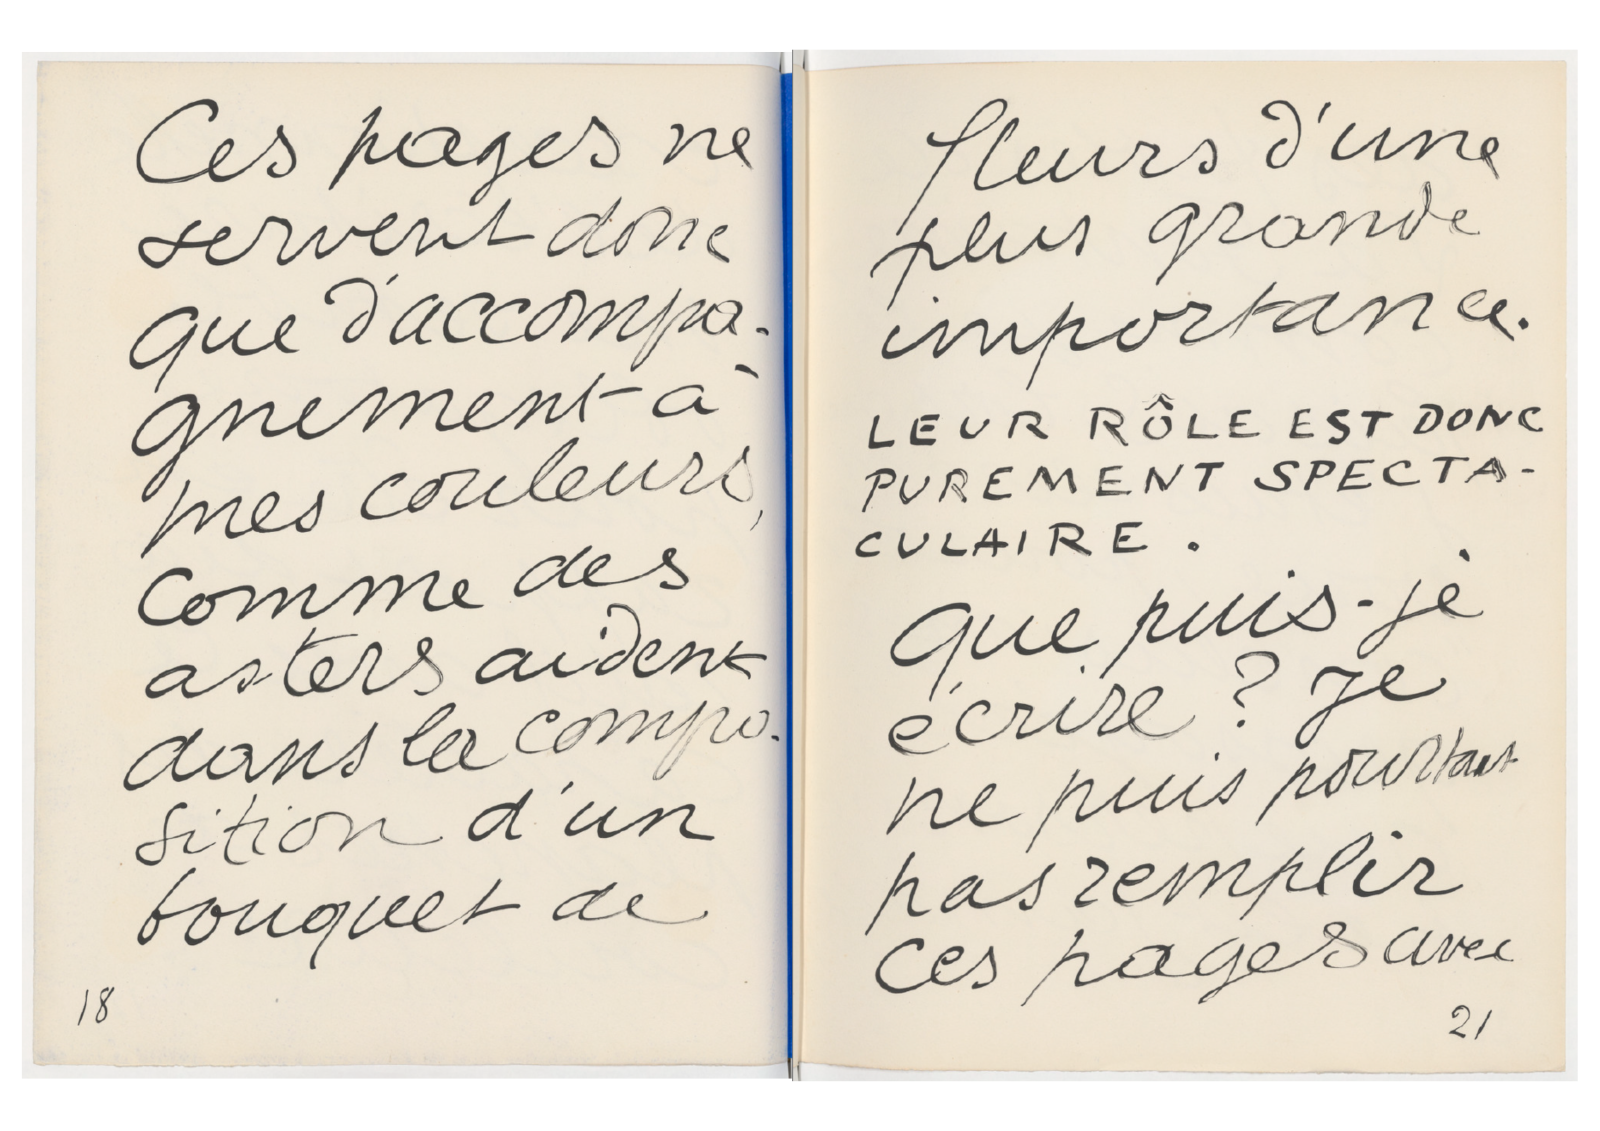 Ces pages ne
servent donc
que d'accompa-
gnement à
mes couleurs,
comme des
asters aident
dans la compo-
sition d'un
bouquet de
18
fleurs d'une
plus grande
importance.
LEUR RÔLE EST DONC
PUREMENT SPECTA-
CULAIRE.
Que puis-je
écrire ? Je
ne puis pourtant
pas remplir
ces pages avec
21